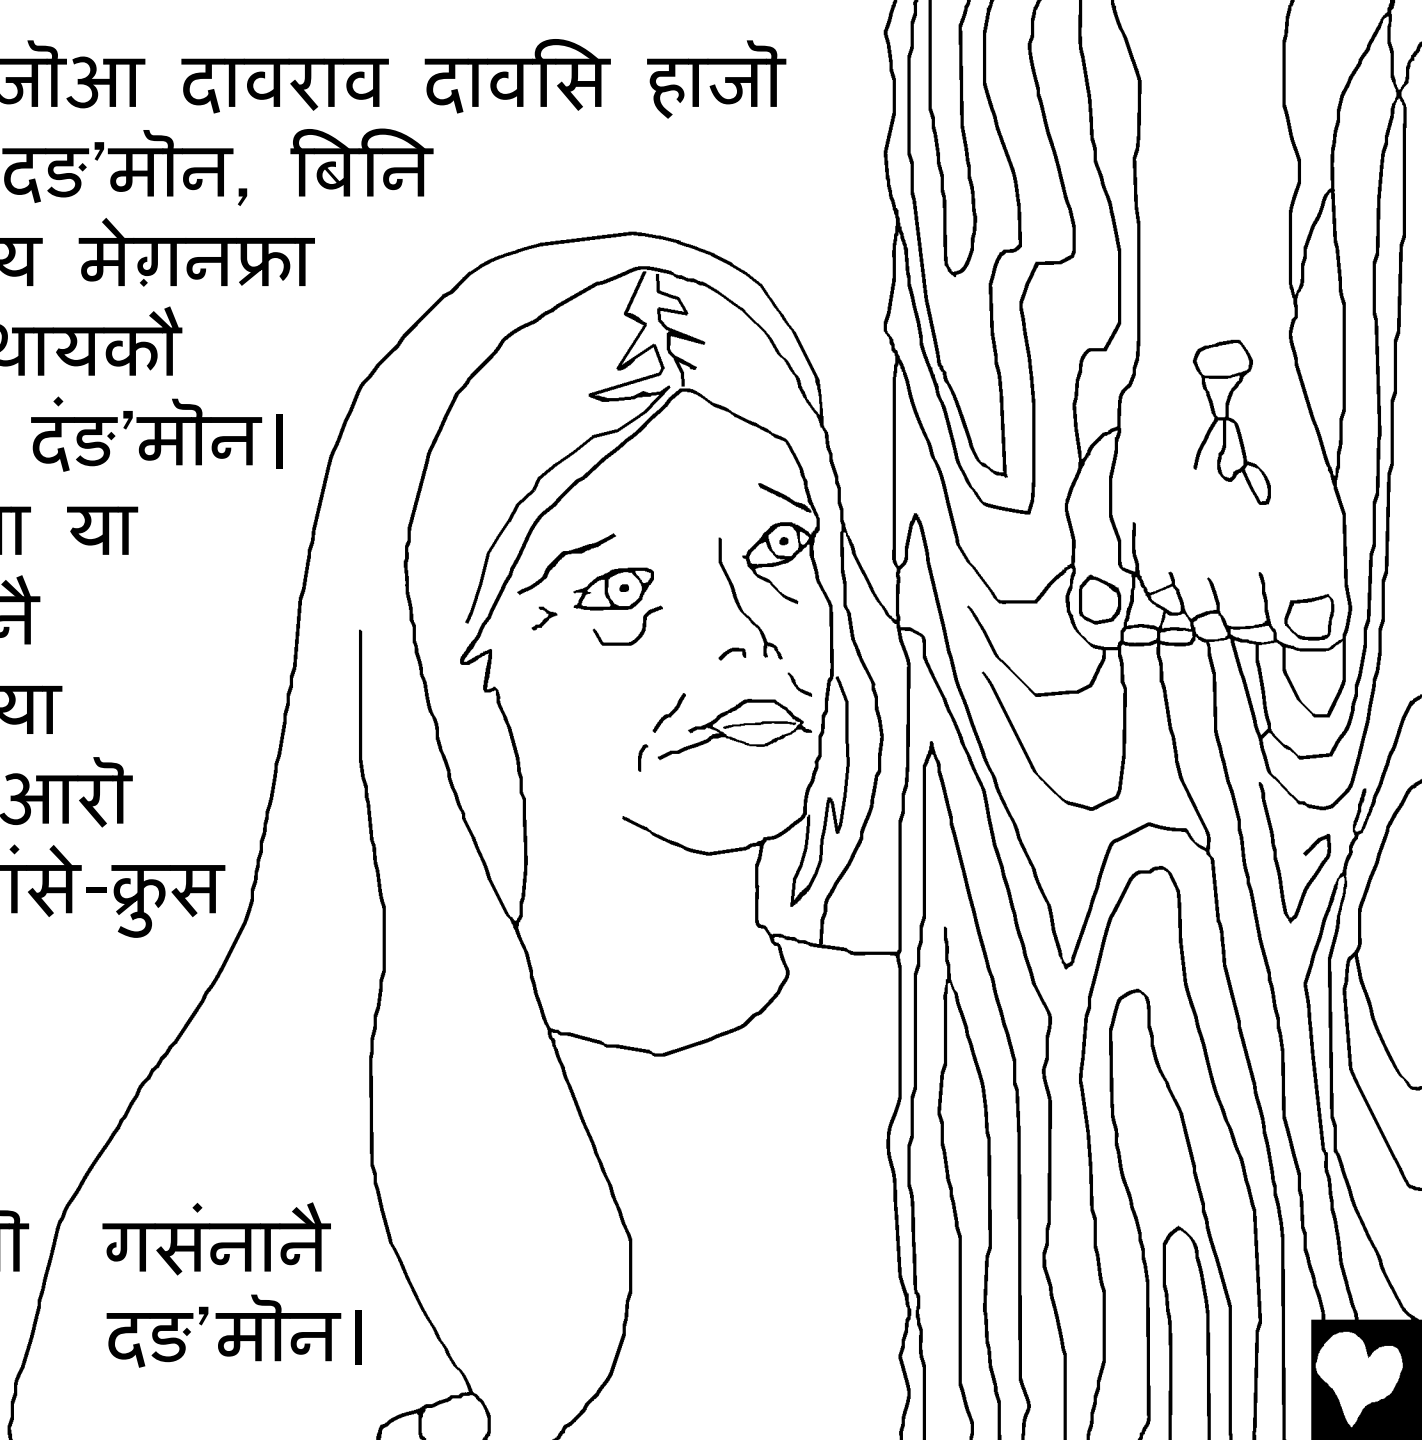 जॊआ दावराव दावसि हाजॊ
दङ’मॊन, बिनि
य मेग़नफ्रा
थायकौ
दंङ’मॊन।
या
नै
या
आरॊ
ांसे-क्रुस
गसंनानै
दङ’मॊन।